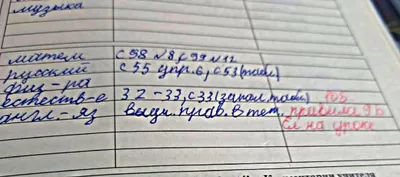 музыка
матем с 58 №8, с 99 №12
русский с 55 упр. 6, с 53 (табл)
физ-ра
естеств-е 32-33, с 33 (запол. табл.)
англ-яз выуч. прав. в тет. правила 96
на уроке